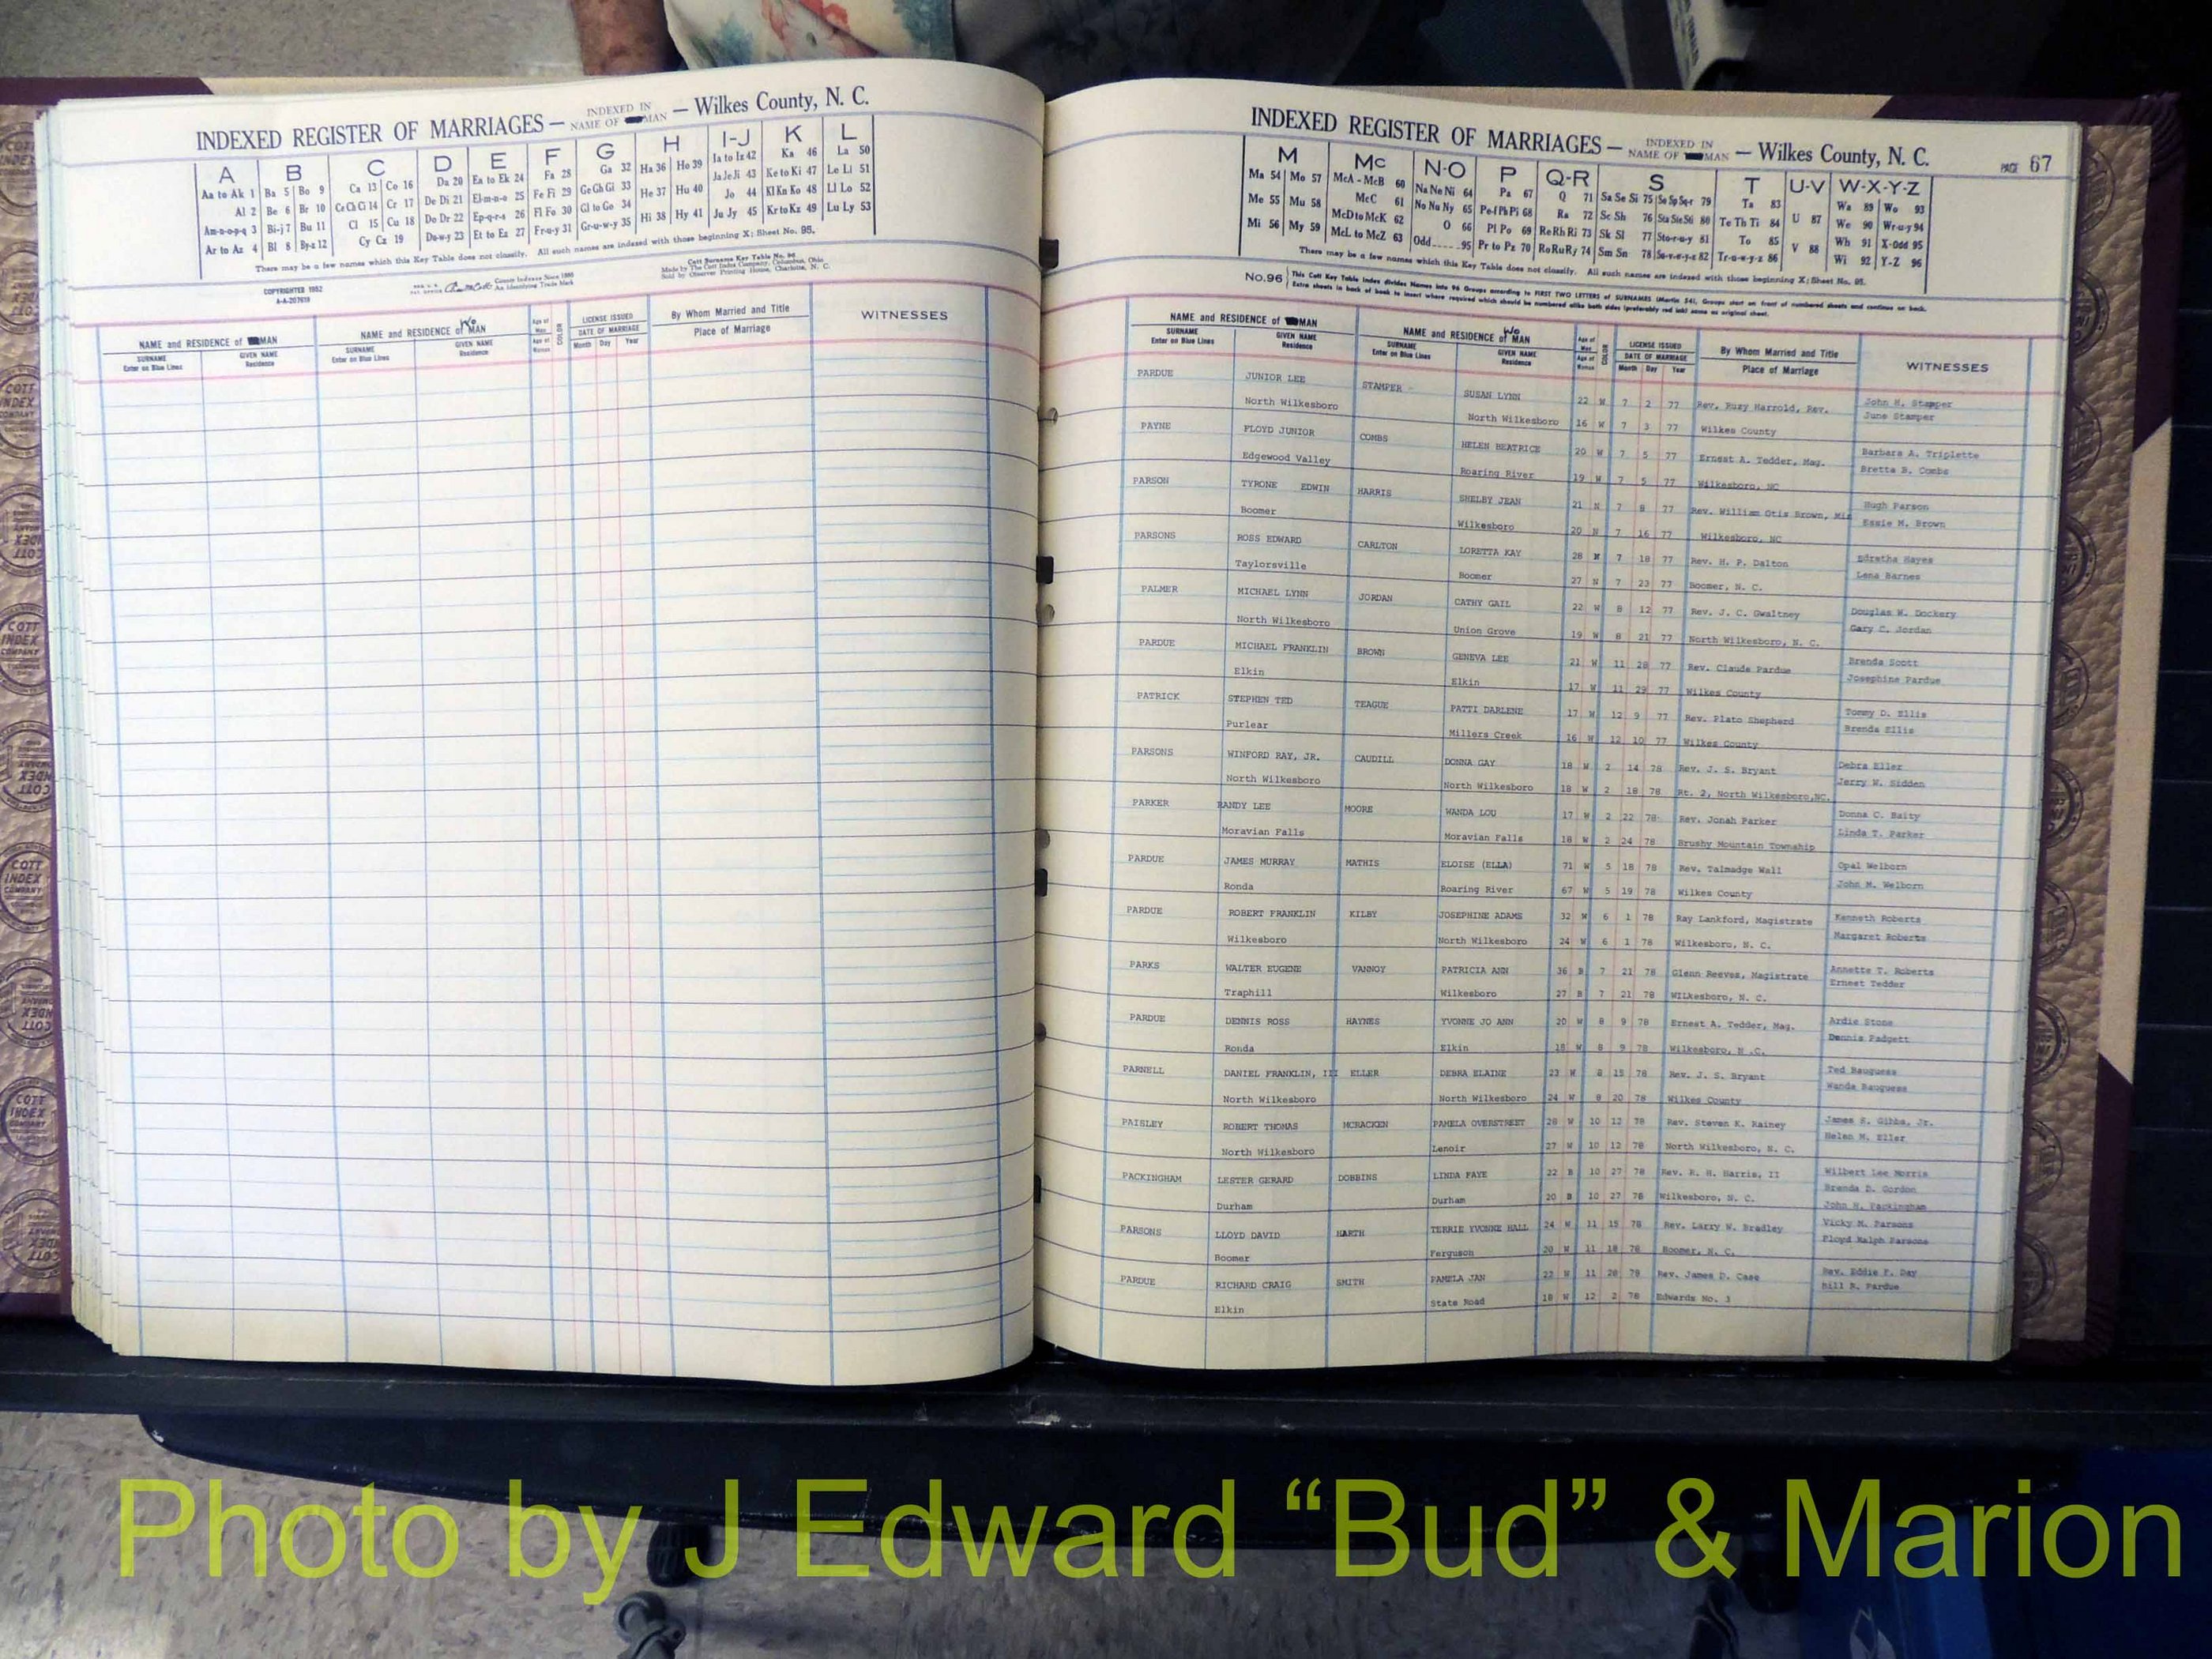 INDEXED REGISTER OF MARRIAGES — INDEXED IN NAME OF MAN — Wilkes County, N. C.
A B C D E F G H I-J K L
Aa to Ak 1 Ba 5 Bo 9 Ca 13 Co 16 Da 20 Ea to Ek 24 Fa 28 Ga 32 Ha 36 Ho 39 Ia to Iz 42 Ka 46 La 50
Al 2 Be 6 Br 10 Ce Ch Ci 14 Cr 17 De Di 21 El-m-n-o 25 Fe Fi 29 Ge Gh Gi 33 He 37 Hu 40 Ja Je Ji 43 Ke to Ki 47 Le Li 51
Am-n-o-p-q 3 Bi-j 7 Bu 11 Cl 15 Cu 18 Do Dr 22 Ep-q-r-s 26 Fl Fo 30 Gl to Go 34 Hi 38 Hy 41 Jo 44 Kl Kn Ko 48 Ll Lo 52
Ar to Az 4 Bl 8 By-z 12 Cy Cz 19 Du-w-y 23 Et to Ez 27 Fr-u-y 31 Gr-u-w-y 35 Ju Jy 45 Kr to Kz 49 Lu Ly 53
There may be a few names which this Key Table does not classify. All such names are indexed with those beginning X; Sheet No. 95.
COPYRIGHTED 1952
A-A-207619
County Indexes Since 1880
An Identifying Trade Mark
Cott Surname Key Table No. 96
Made by The Cott Index Company, Columbus, Ohio
Sold by Observer Printing House, Charlotte, N. C.
NAME and RESIDENCE of MAN NAME and RESIDENCE of WoMAN Age of Man COLOR LICENSE ISSUED By Whom Married and Title WITNESSES
SURNAME GIVEN NAME SURNAME GIVEN NAME Age of Woman DATE OF MARRIAGE Place of Marriage
Enter on Blue Lines Residence Enter on Blue Lines Residence Month Day Year
INDEXED REGISTER OF MARRIAGES — INDEXED IN NAME OF MAN — Wilkes County, N. C. PAGE 67
M Mc N-O P Q-R S T U-V W-X-Y-Z
Ma 54 Mo 57 McA - McB 60 Na Ne Ni 64 Pa 67 Q 71 Sa Se Si 75 Se Sp Sq-r 79 Ta 83 U 87 Wa 89 Wo 93
Me 55 Mu 58 McC 61 No Nu Ny 65 Pe-f Ph Pi 68 Ra 72 Sc Sh 76 Sta Ste Sti 80 Te Th Ti 84 V 88 We 90 Wr-u-y 94
Mi 56 My 59 McD to McK 62 O 66 Pl Po 69 Re Rh Ri 73 Sk Sl 77 Sto-r-u-y 81 To 85 Wh 91 X-Odd 95
McL to McZ 63 Odd 95 Pr to Pz 70 Ro Ru Ry 74 Sm Sn 78 Su-v-w-y-z 82 Tr-u-w-y-z 86 Wi 92 Y-Z 96
There may be a few names which this Key Table does not classify. All such names are indexed with those beginning X; Sheet No. 95.
No.96 This Cott Key Table Index divides Names into 96 Groups according to FIRST TWO LETTERS of SURNAMES (Martin 54), Groups start on front of numbered sheets and continue on back.
Extra sheets in back of book to insert where required which should be numbered alike both sides (preferably red ink) same as original sheet.
NAME and RESIDENCE of MAN NAME and RESIDENCE of WoMAN Age of Man COLOR LICENSE ISSUED By Whom Married and Title WITNESSES
SURNAME GIVEN NAME SURNAME GIVEN NAME Age of Woman DATE OF MARRIAGE Place of Marriage
Enter on Blue Lines Residence Enter on Blue Lines Residence Month Day Year
PARDUE JUNIOR LEE STAMPER SUSAN LYNN 22 W 7 2 77 Rev. Ruzy Harrold, Rev. John H. Stamper
North Wilkesboro North Wilkesboro 16 W 7 3 77 Wilkes County June Stamper
PAYNE FLOYD JUNIOR COMBS HELEN BEATRICE 20 W 7 5 77 Ernest A. Tedder, Mag. Barbara A. Triplette
Edgewood Valley Roaring River 19 W 7 5 77 Wilkesboro, NC Bretta B. Combs
PARSON TYRONE EDWIN HARRIS SHELBY JEAN 21 N 7 8 77 Rev. William Otis Brown, Min Hugh Parson
Boomer Wilkesboro 20 N 7 16 77 Wilkesboro, NC Essie M. Brown
PARSONS ROSS EDWARD CARLTON LORETTA KAY 28 N 7 18 77 Rev. H. P. Dalton Edretha Hayes
Taylorsville Boomer 27 N 7 23 77 Boomer, N. C. Lena Barnes
PALMER MICHAEL LYNN JORDAN CATHY GAIL 22 W 8 12 77 Rev. J. C. Gwaltney Douglas W. Dockery
North Wilkesboro Union Grove 19 W 8 21 77 North Wilkesboro, N. C. Gary C. Jordan
PARDUE MICHAEL FRANKLIN BROWN GENEVA LEE 21 W 11 28 77 Rev. Claude Pardue Brenda Scott
Elkin Elkin 17 W 11 29 77 Wilkes County Josephine Pardue
PATRICK STEPHEN TED TEAGUE PATTI DARLENE 17 W 12 9 77 Rev. Plato Shepherd Tommy D. Ellis
Purlear Millers Creek 16 W 12 10 77 Wilkes County Brenda Ellis
PARSONS WINFORD RAY, JR. CAUDILL DONNA GAY 18 W 2 14 78 Rev. J. S. Bryant Debra Eller
North Wilkesboro North Wilkesboro 18 W 2 18 78 Rt. 2, North Wilkesboro,NC. Jerry W. Sidden
PARKER RANDY LEE MOORE WANDA LOU 17 W 2 22 78 Rev. Jonah Parker Donna C. Baity
Moravian Falls Moravian Falls 18 W 2 24 78 Brushy Mountain Township Linda T. Parker
PARDUE JAMES MURRAY MATHIS ELOISE (ELLA) 71 W 5 18 78 Rev. Talmadge Wall Opal Welborn
Ronda Roaring River 67 W 5 19 78 Wilkes County John M. Welborn
PARDUE ROBERT FRANKLIN KILBY JOSEPHINE ADAMS 32 W 6 1 78 Ray Lankford, Magistrate Kenneth Roberts
Wilkesboro North Wilkesboro 24 W 6 1 78 Wilkesboro, N. C. Margaret Roberts
PARKS WALTER EUGENE VANNOY PATRICIA ANN 36 B 7 21 78 Glenn Reeves, Magistrate Annette T. Roberts
Traphill Wilkesboro 27 B 7 21 78 WIlkesboro, N. C. Ernest Tedder
PARDUE DENNIS ROSS HAYNES YVONNE JO ANN 20 W 8 9 78 Ernest A. Tedder, Mag. Ardie Stone
Ronda Elkin 18 W 8 9 78 Wilkesboro, N .C. Dennis Padgett
PARNELL DANIEL FRANKLIN, III ELLER DEBRA ELAINE 23 W 8 15 78 Rev. J. S. Bryant Ted Bauguess
North Wilkesboro North Wilkesboro 24 W 8 20 78 Wilkes County Wanda Bauguess
PAISLEY ROBERT THOMAS MCRACKEN PAMELA OVERSTREET 28 W 10 12 78 Rev. Steven K. Rainey James E. Gibbs, Jr.
North Wilkesboro Lenoir 27 W 10 12 78 North Wilkesboro, N. C. Helen M. Eller
PACKINGHAM LESTER GERARD DOBBINS LINDA FAYE 22 B 10 27 78 Rev. R. H. Harris, II Wilbert Lee Morris
Durham Durham 20 B 10 27 78 Wilkesboro, N. C. Brenda D. Gordon
John H. Packingham
PARSONS LLOYD DAVID HARTH TERRIE YVONNE HALL 24 W 11 15 78 Rev. Larry W. Bradley Vicky M. Parsons
Boomer Ferguson 20 W 11 18 78 Boomer, N. C. Floyd Ralph Parsons
PARDUE RICHARD CRAIG SMITH PAMELA JAN 22 W 11 20 78 Rev. James D. Case Rev. Eddie F. Day
Elkin State Road 18 W 12 2 78 Edwards No. 3 Bill R. Pardue
Photo by J Edward “Bud” & Marion